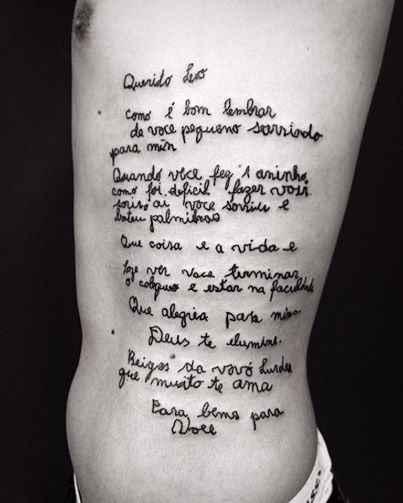 Querido Leo
como é bom lembrar
de voce pequeno sorrindo
para min
Quando voce fez 1 aninho,
como foi dificil fazer voir
soriso ai voce sorriu e
bateu palminhas
Que coisa e a vida e
hoje ver voce terminar
o colegueo e estar na faculdade
Que alegria para mim
Deus te elumine.
Beigos da vovó Lurdes
que muito te ama
Para bems para
Voce